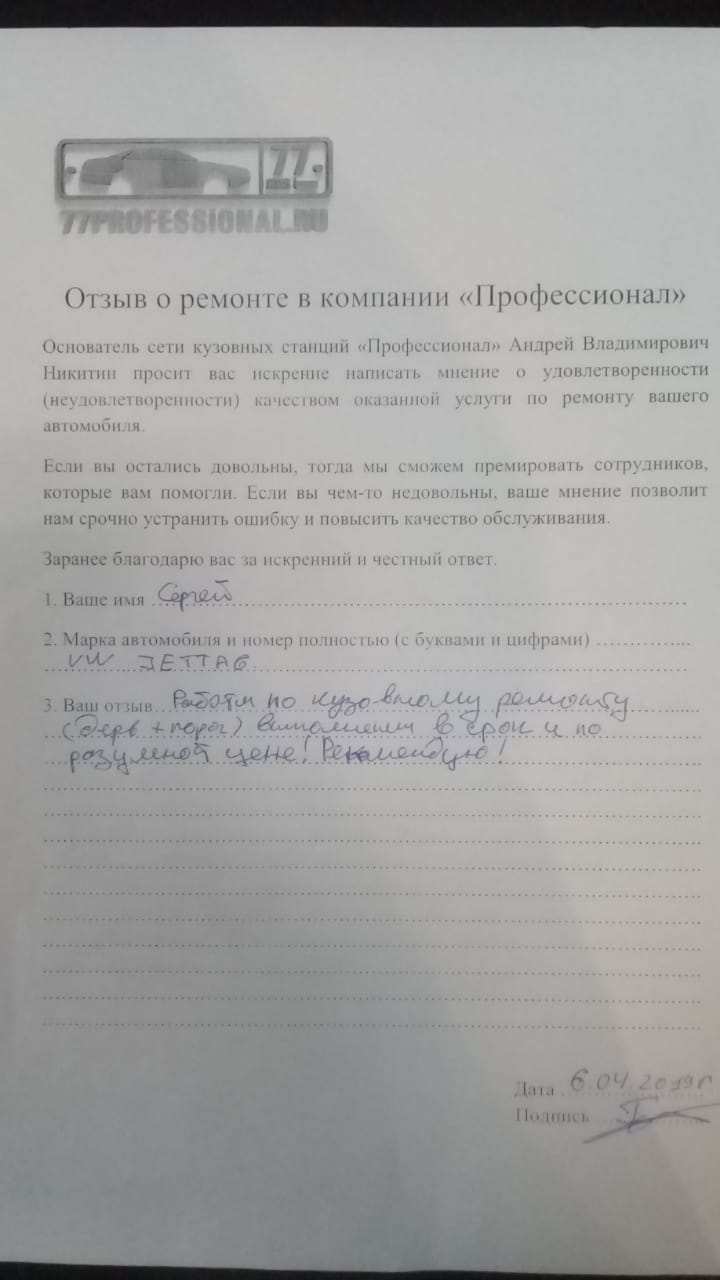 77
77PROFESSIONAL.RU
Отзыв о ремонте в компании «Профессионал»
Основатель сети кузовных станций «Профессионал» Андрей Владимирович
Никитин просит вас искренне написать мнение о удовлетворенности
(неудовлетворенности) качеством оказанной услуги по ремонту вашего
автомобиля.
Если вы остались довольны, тогда мы сможем премировать сотрудников,
которые вам помогли. Если вы чем-то недовольны, ваше мнение позволит
нам срочно устранить ошибку и повысить качество обслуживания.
Заранее благодарю вас за искренний и честный ответ.
1. Ваше имя Сергей
2. Марка автомобиля и номер полностью (с буквами и цифрами)
VW JETTA 6
3. Ваш отзыв Работы по кузовному ремонту
( + порог) выполнены в срок и по
разумной цене! Рекомендую!
Дата 6.04.2019г
Подпись